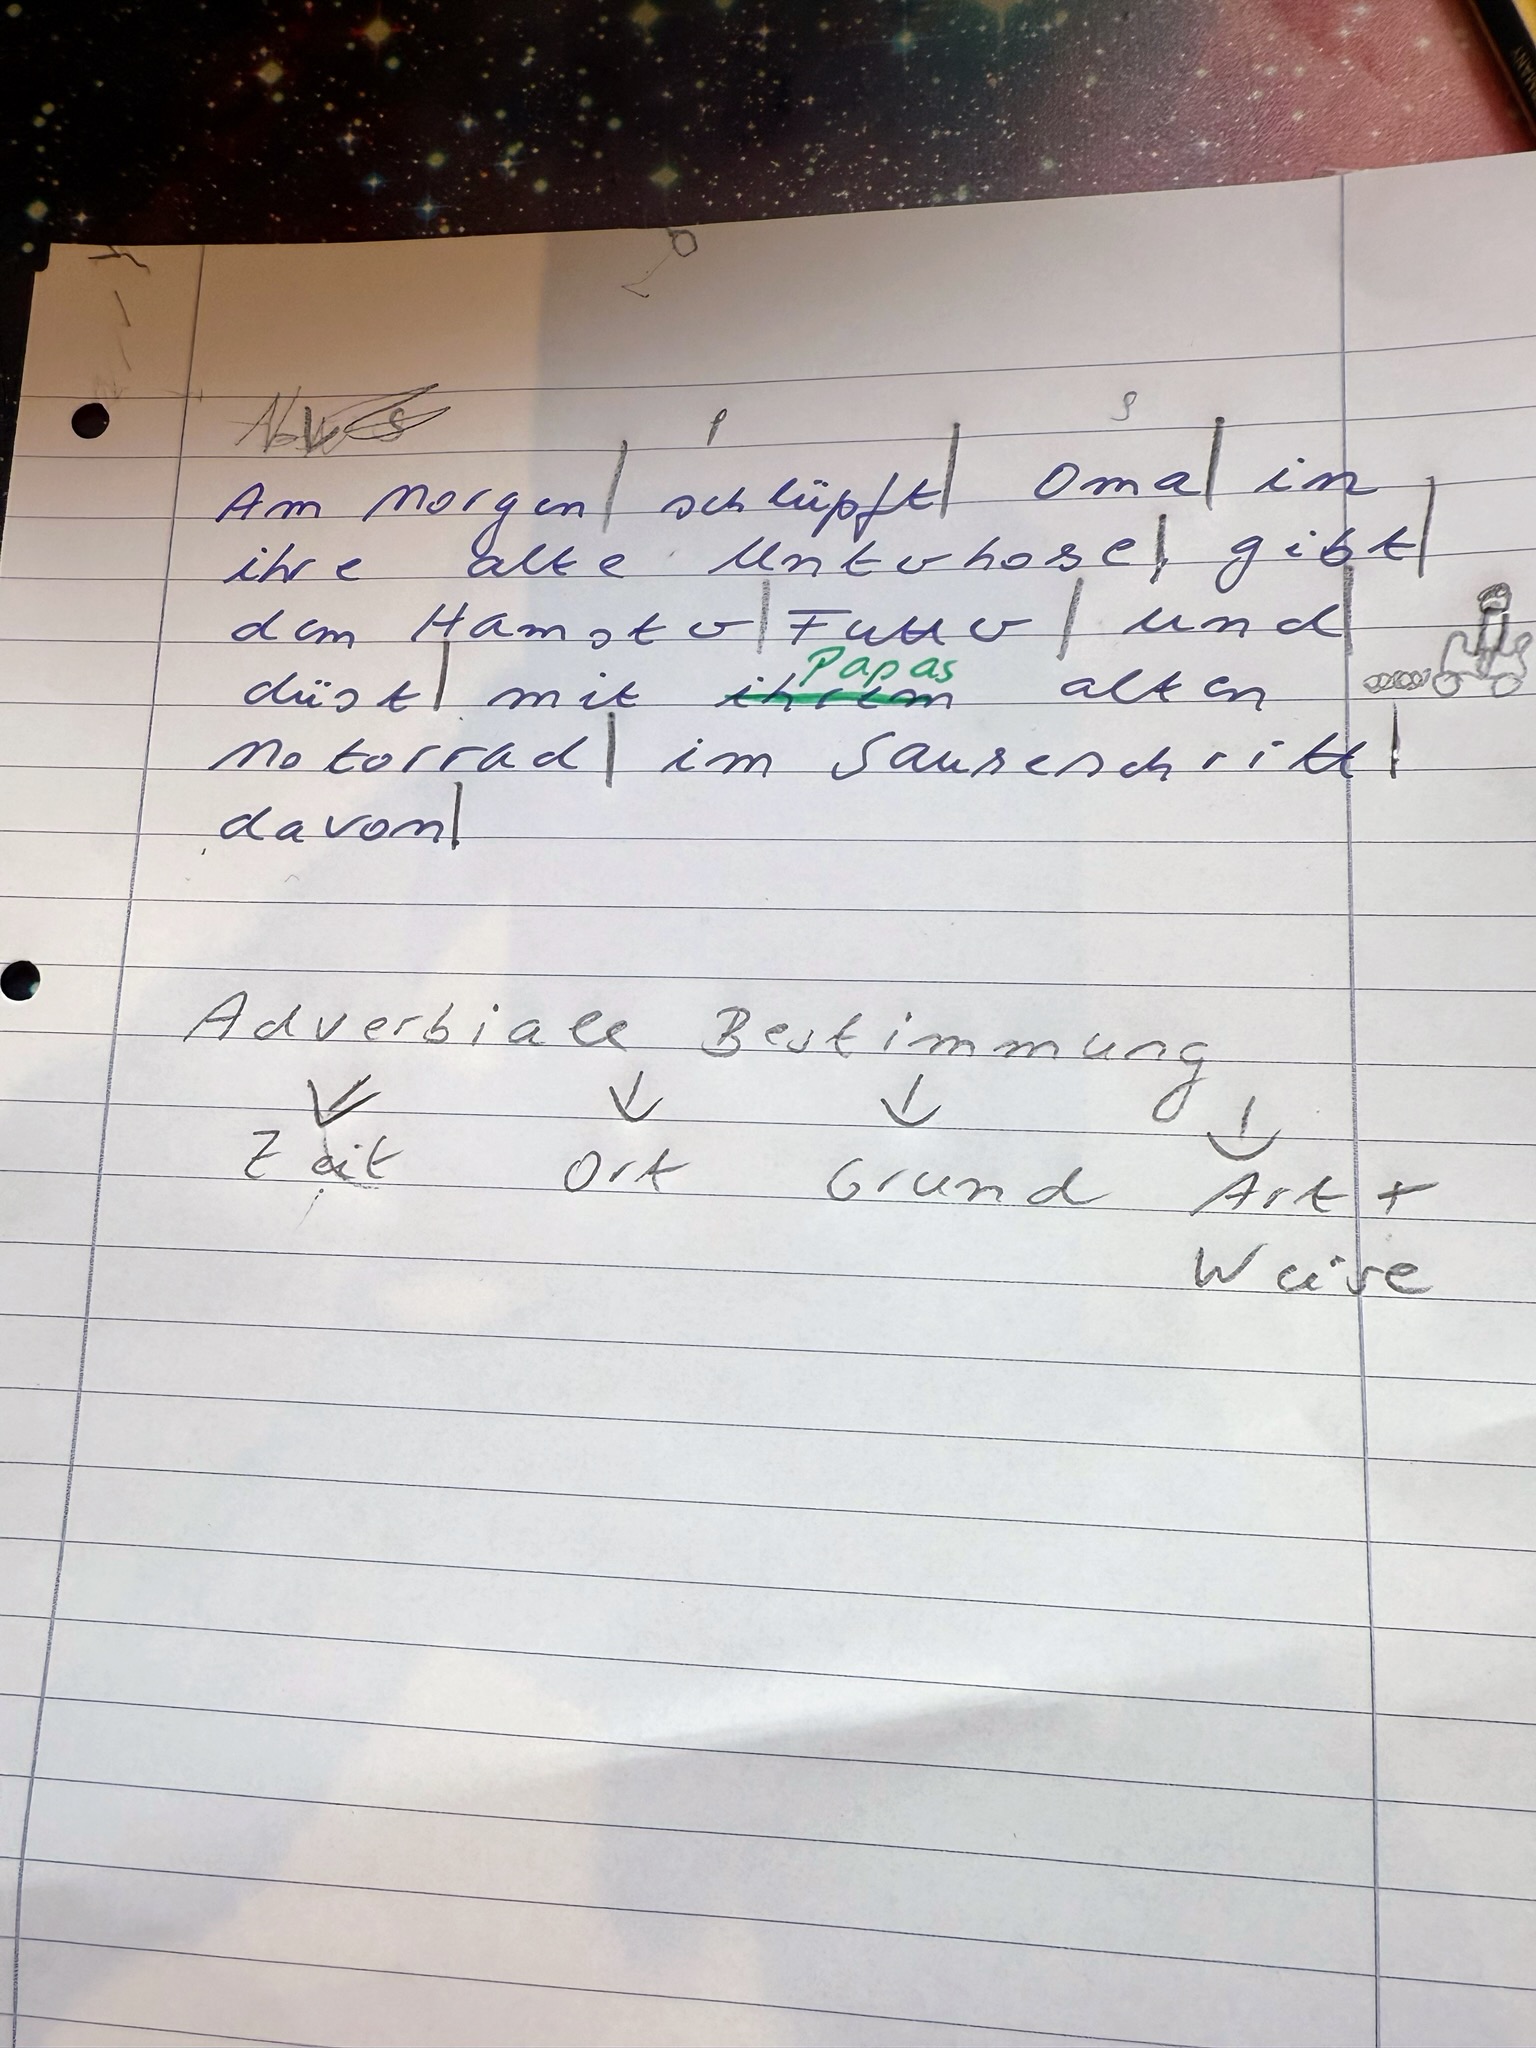 P S
Am Morgen | schlüpft | Oma | in
ihre alte Unterhose |, gibt |
dem Hamster | Futter | und |
Papas
düst | mit ihrem alten
Motorrad | im Sauseschritt |
davon |
Adverbiale Bestimmung
↓ ↓ ↓ ↓
Zeit Ort Grund Art +
Weise